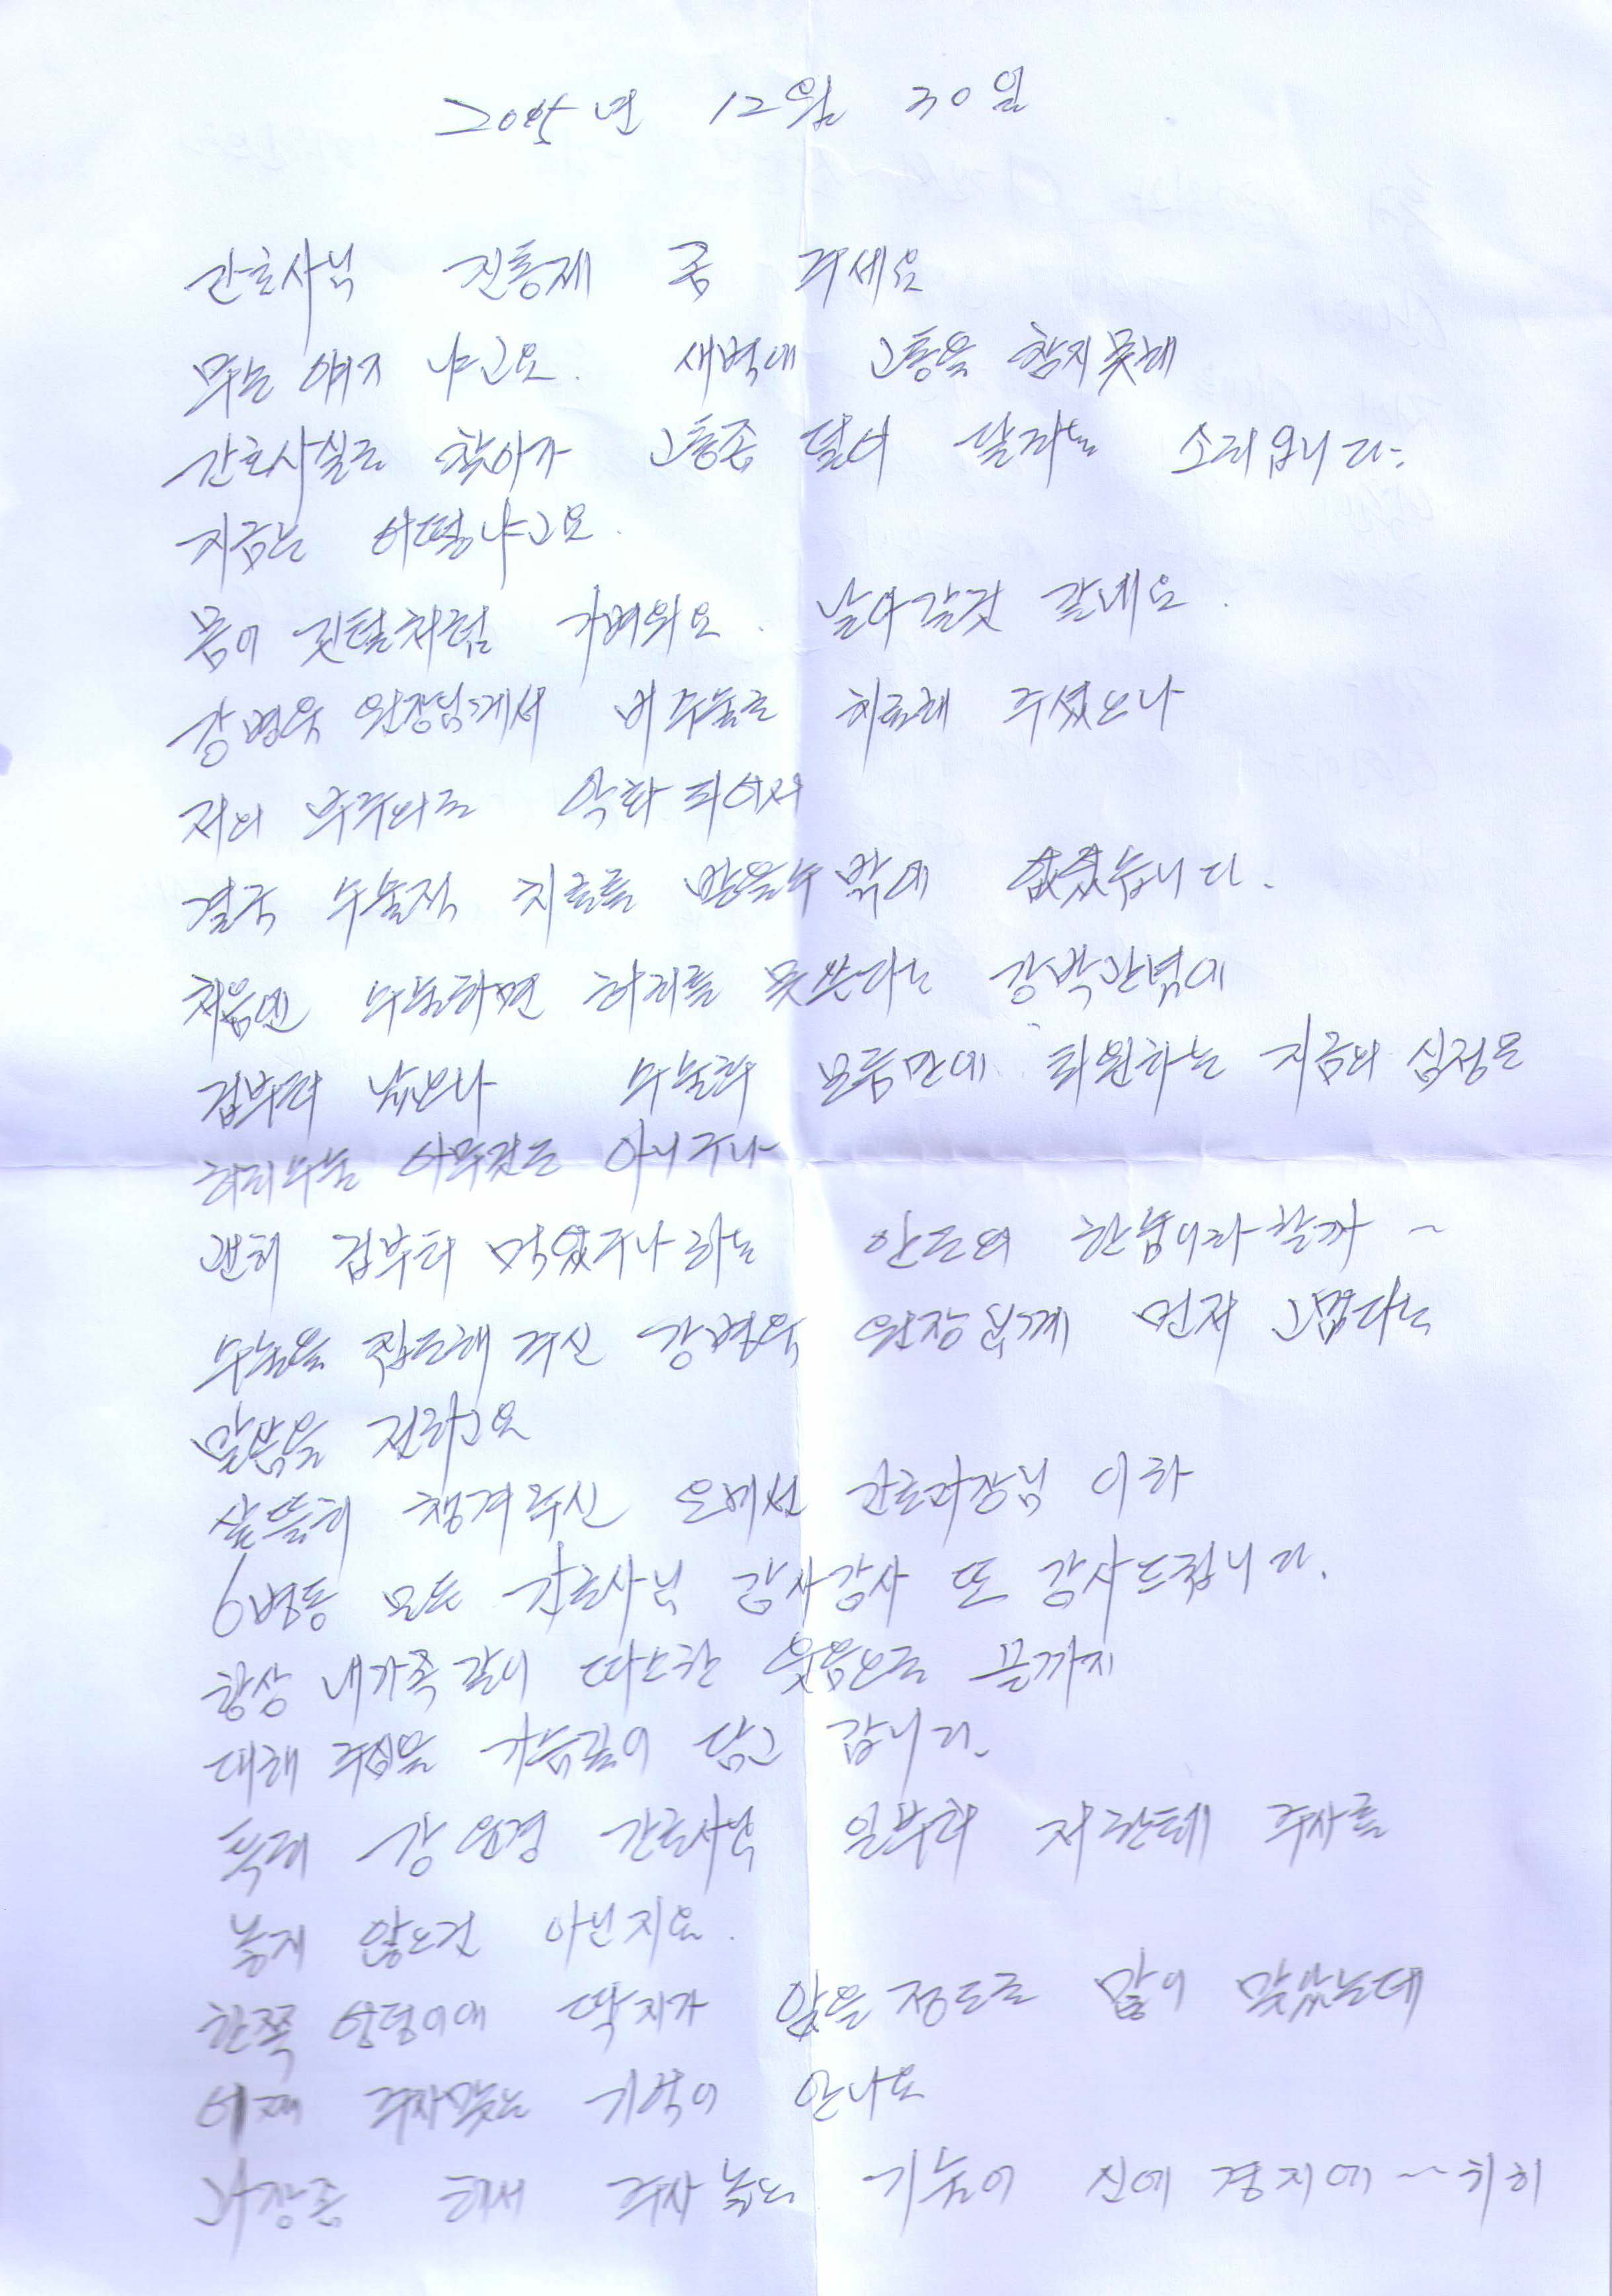 12월 30일
간호사님 진통제 좀 주세요
무슨 얘기 냐고요. 새벽에 고통을 참지못해
간호사실로 찾아가 고통좀 덜어 달라는 소리입니다.
지금은 어떻냐고요.
몸이 깃털처럼 가벼워요. 날아갈것 같네요.
강병욱 원장님께서 비수술로 치료해 주셨으나
저의 부주의로 악화 되어서
결국 수술적 치료를 받을수 밖에 없었습니다.
처음엔 수술하면 허리를 못쓴다는 강박관념에
겁부터 났으나 수술후 보름만에 퇴원하는 지금의 심정은
허리수술 아무것도 아니구나
괜히 겁부터 먹었구나 하는 안도의 한숨이라할까 ~
수술을 집도해 주신 강병욱 원장님께 먼저 고맙다는
말씀을 전하고요
살뜰히 챙겨주신 간호과장님 이하
6병동 모든 간호사님 감사감사 또 감사드립니다.
항상 내가족 같이 따스한 웃음으로 끝까지
대해 주심을 가슴깊이 담고 갑니다.
특히 강 간호사님 일부러 저한테 주사를
놓지 않는건 아닌지요.
한쪽 엉덩이에 딱지가 앉을 정도로 많이 맞았는데
어째 주사맞는 기억이 안나요
과장좀 해서 주사 놓는 기술이 신에 경지에 ~~ 히히